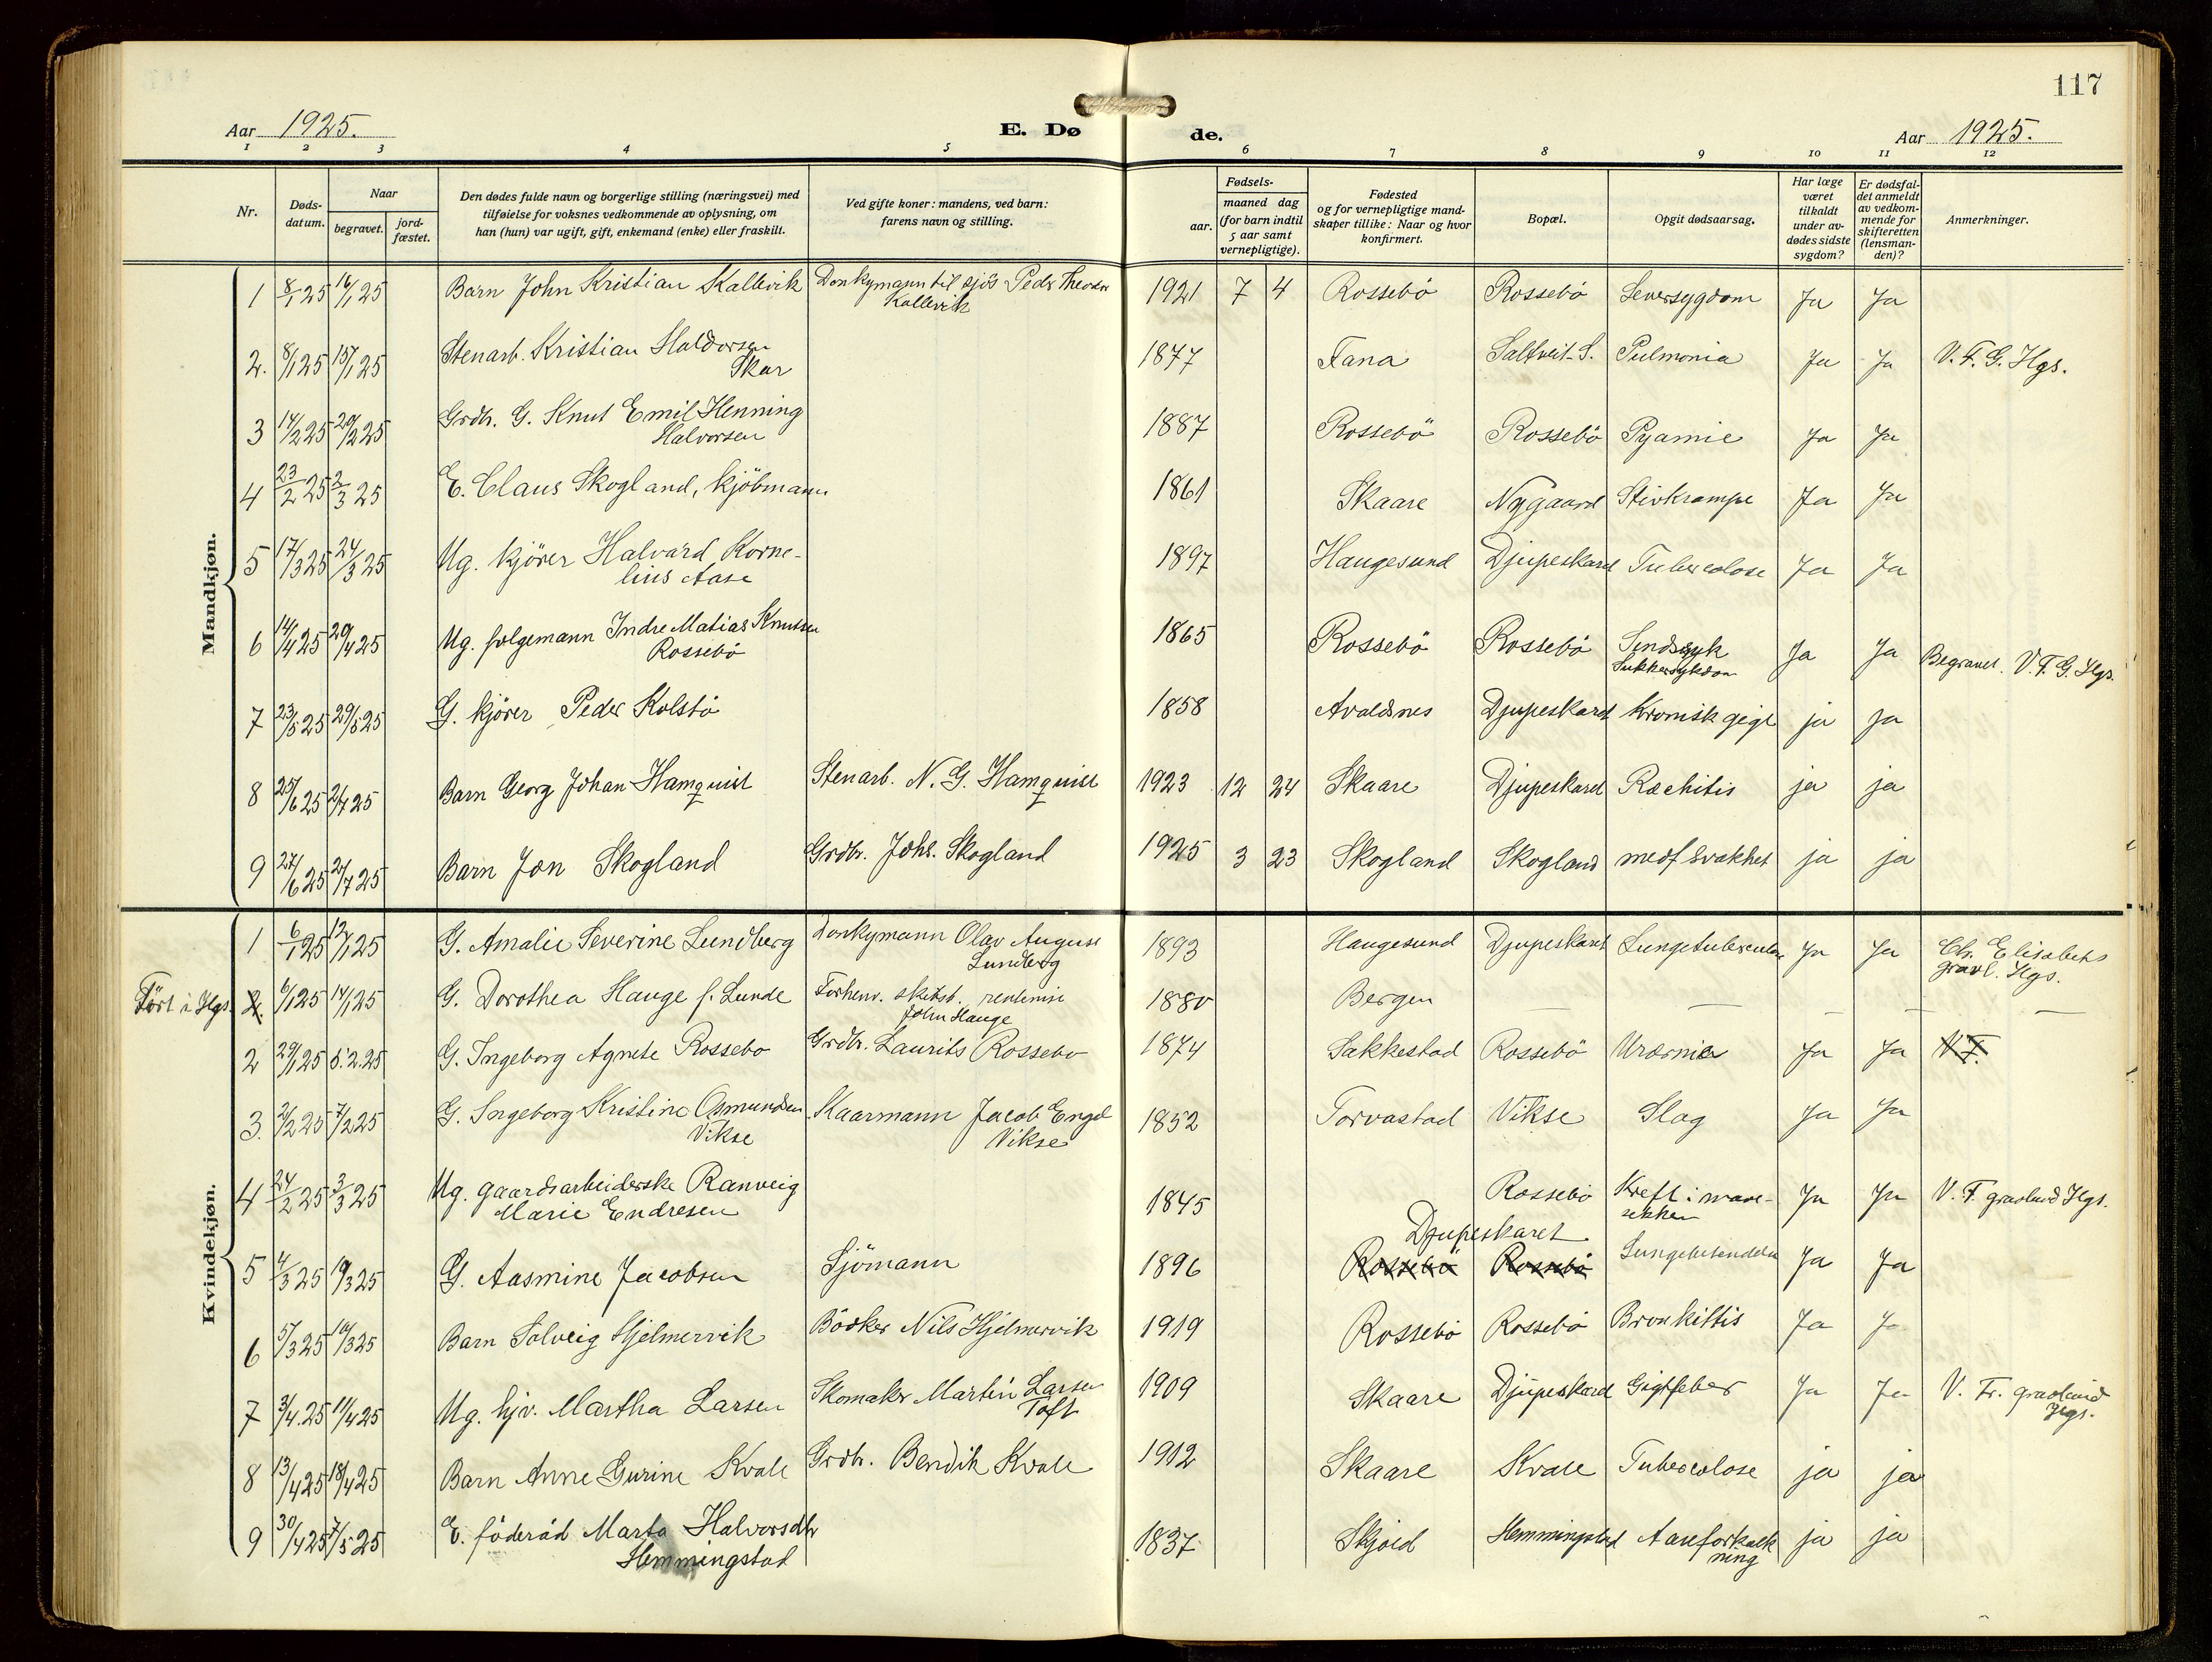 117
Aar 1925.
E. Dø de.
Aar 1925.
1 2 3 4 5 6 7 8 9 10 11 12
Nr.
Døds-
datum.
Naar
begravet.
jord-
fæstet.
Den dødes fulde navn og borgerlige stilling (næringsvei) med
tilføielse for voksnes vedkommende av oplysning, om
han (hun) var ugift, gift, enkemand (enke) eller fraskilt.
Ved gifte koner: mandens, ved barn:
farens navn og stilling.
Fødsels-
aar.
maaned dag
(for barn indtil
5 aar samt
vernepligtige).
Fødested
og for vernepligtige mand-
skaper tillike: Naar og hvor
konfirmert.
Bopæl.
Opgit dødsaarsag.
Har læge
været
tilkaldt
under av-
dødes sidste
sygdom?
Er dødsfal-
det anmeldt
av vedkom-
mende for
skifteretten
(lensman-
den)?
Anmerkninger.
Mandkjøn.
1 8/1 25 16/1 25 Barn John Kristian Kallevik Donkymann til sjøs Peder Theodor
Kallevik 1921 7 4 Rossebö Rossebö Leversygdom Ja Ja
2. 8/1 25 15/1 25 Stenarb. Kristian Haldorsen
Skar 1877 Fana Saltveit S. Pulmonia Ja Ja V. F. G. Hgs.
3 14/2 25 20/2 25 Grdbr. G. Knut Emil Henning
Halvorsen 1887 Rossebö Rossebö Pyamie Ja Ja
4 23/2 25 2/3 25 E. Claus Skogland, kjöbmann 1861 Skaare Nygaard Stivkrampe Ja Ja
5 17/3 25 24/3 25 Ug. kjörer Halvard Korne-
lius Aase 1897 Haugesund Djupeskard Tuberculose Ja Ja
6 14/4 25 20/4 25 Ug. folgemann Indre Matias Knutsen
Rossebö 1865 Rossebö Rossebö Sindssyk
Sukkersykdom Ja Ja Begravet. V. F. G. Hgs.
7 23/5 25 29/5 25 G. kjörer Peder Kolstö 1858 Avaldsnes Djupeskard Kronisk gigt ja ja
8 25/6 25 2/7 25 Barn Georg Johan Hamquist Stenarb. N. G. Hamquist 1923 12 24 Skaare Djupeskard Rachitis ja ja
9 27/6 25 2/7 25 Barn Jon Skogland Grdbr. Johs. Skogland 1925 3 23 Skogland Skogland medf svakhet ja ja
Kvindekjøn.
1 6/1 25 12/1 25 G. Amalie Severine Lundberg Donkymann Olav August
Lundberg 1893 Haugesund Djupeskaret Lungetuberculose Ja Ja Ch. Elisabeths
gravl. Hgs.
Fört i Hgs. 2. 6/1 25 14/1 25 G. Dorothea Hauge f. Lunde Forhenv. skibsb. rentenist
John Hauge 1880 Bergen — — — — —
2 29/1 25 5.2.25 G. Ingeborg Agnete Rossebö Grdbr. Laurits Rossebö 1874 Sakkestad Rossebö Uræmia Ja Ja V. F.
3. 2/2 25 7/2 25 G. Ingeborg Kristine Osmundsen
Vikse Kaarmann Jacob Engel
Vikse 1852 Torvastad Vikse Slag Ja Ja
4 24/2 25 3/3 25 Ug. gaardsarbeiderske Ranveig
Marie Endresen 1845 Rossebö Kreft i mave-
sekken Ja Ja V. F. gravlund Hgs.
Djupeskaret
5 4/3 25 10/3 25 G. Aasmine Jacobsen Sjömann 1896 Rossebö Rossebö Lungebetendelse Ja Ja
6 5/3 25 10/3 25 Barn Solveig Hjelmervik Bödker Nils Hjelmervik 1919 Rossebö Rossebö Bronkittis Ja Ja
7 3/4.25 11/4 25 Ug. hjv. Martha Larsen Skomaker Martin Larsen
Toft 1909 Skaare Djupeskard Gigtfeber Ja Ja V. Fr. gravlund
Hgs.
8 13/4 25 18/4 25 Barn Anne Gurine Kvale Grdbr. Bendik Kvale 1912 Skaare Kvale Tuberculose ja ja
9 30/4 25 7/5 25 E. föderåd Marta Halvorsdtr
Hemmingstad 1837 Skjold Hemmingstad Aareforkalk
ning ja ja